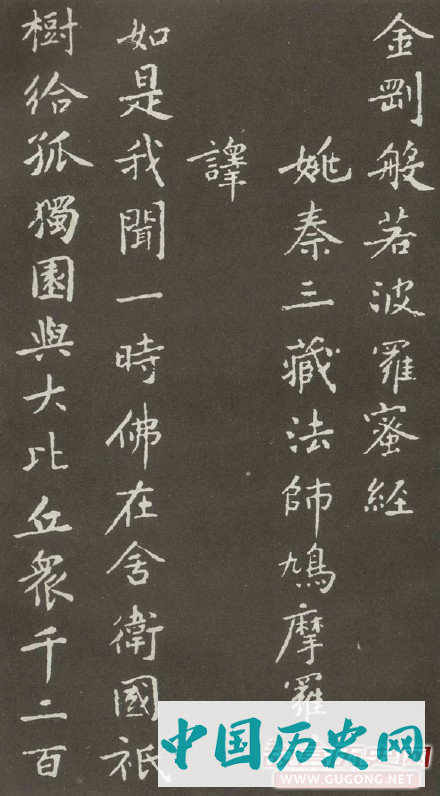 金剛般若波羅蜜經
姚秦三藏法師鳩摩羅
譯
如是我聞一時佛在舍衛國祇
樹給孤獨園與大比丘衆千二百
中国历史网
WWW.GUGONG.NET